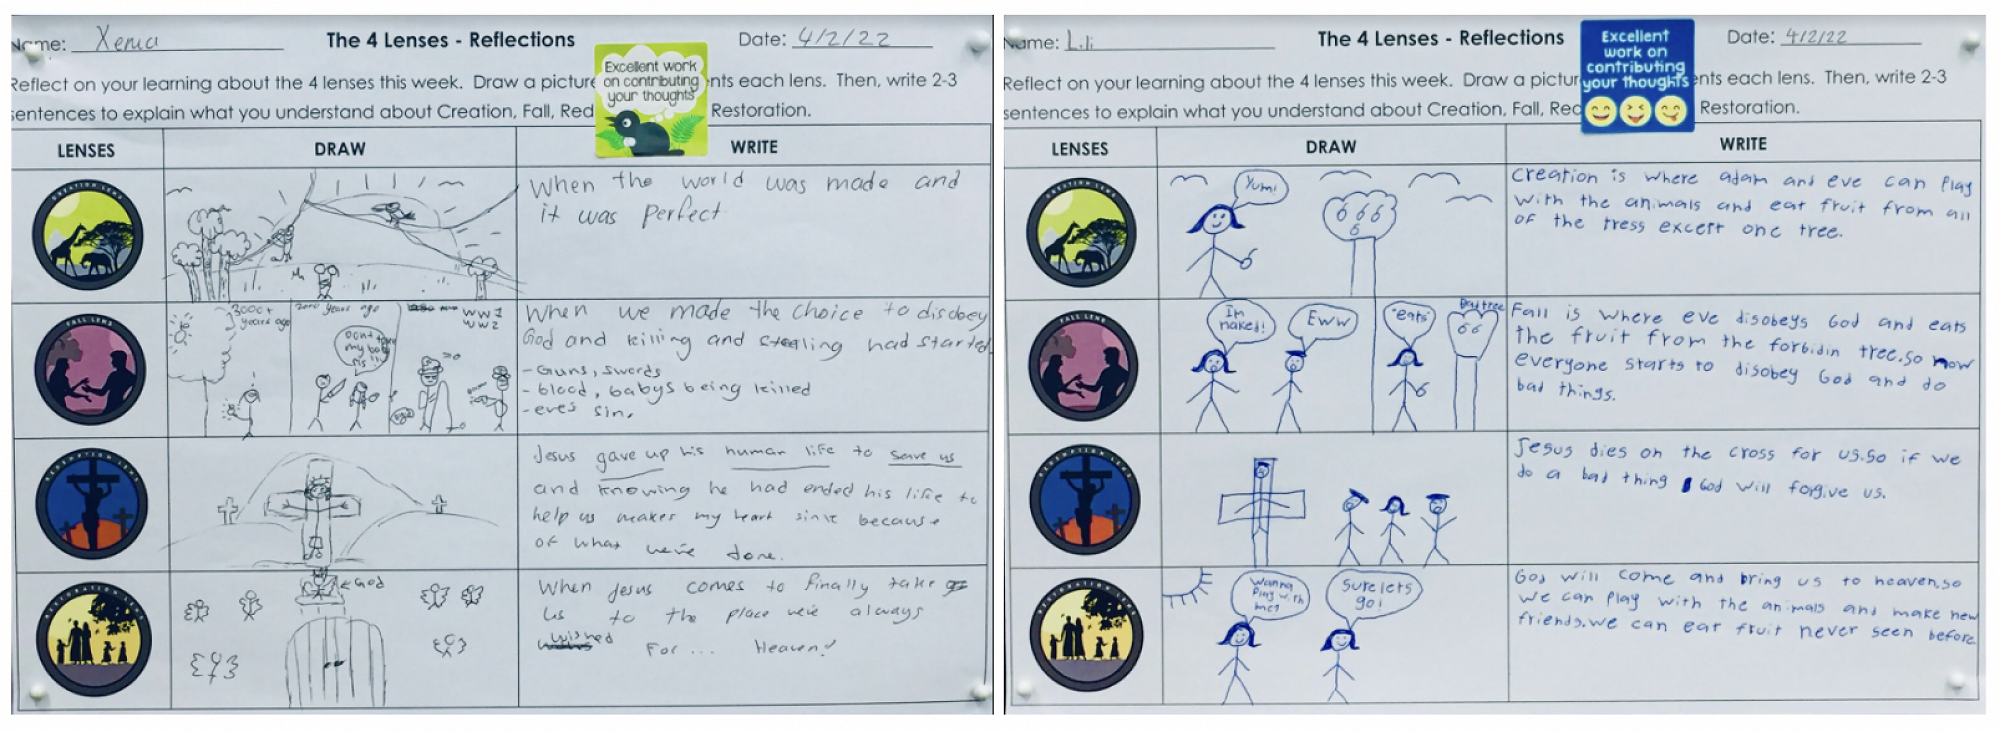 Name: Xenia
The 4 Lenses - Reflections
Date: 4/2/22
Excellent work
on contributing
your thoughts
Reflect on your learning about the 4 lenses this week. Draw a picture nts each lens. Then, write 2-3
sentences to explain what you understand about Creation, Fall, Red Restoration.
LENSES DRAW WRITE
CREATION LENS
When the world was made and
it was perfect
FALL LENS
3000+
years ago
2000 years ago
WW1
WW2
Dont take
my
When we made the choice to disobey
God and killing and steeling had started
- Guns, swords
- blood, babys being killed
- eve's sin.
REDEMPTION LENS
Jesus gave up his human life to save us
and knowing he had ended his life to
help us makes my heart because
of what we've done.
RESTORATION LENS
God
When Jesus comes to finally take
us to the place we've always
wished
For... Heaven!
Name: Lili
The 4 Lenses - Reflections
Date: 4/2/22
Excellent
work on
contributing
your thoughts
Reflect on your learning about the 4 lenses this week. Draw a pictur nts each lens. Then, write 2-3
sentences to explain what you understand about Creation, Fall, Red Restoration.
LENSES DRAW WRITE
CREATION LENS
Yum!
Creation is where adam and eve can play
with the animals and eat fruit from all
of the tress except one tree.
FALL LENS
Im
naked!
Eww
"eats"
Bad tree
Fall is where eve disobeys God and eats
the fruit from the forbidin tree.so now
everyone starts to disobey God and do
bad things.
REDEMPTION LENS
Jesus dies on the cross for us.so if we
do a bad thing God will forgive us.
RESTORATION LENS
Wanna
play with
me?
Sure lets
go!
God will come and bring us to heaven,so
we can play with the animals and make new
friends.we can eat fruit never seen before